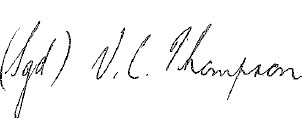 (Sgd) V. C. Thompson